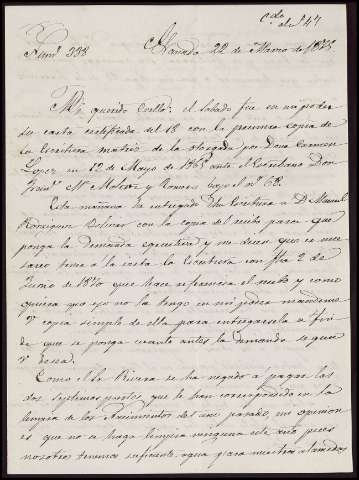 Núm. 338
Granada 22 de Marzo de 1875
Mi querido Coello: el Sabado fue en mi poder
su carta certificada del 18 con la primera copia de
la Escritura matriz de la otorgada por Doña Carmen
Lopez en 12 de Mayo de 1865 ante el Escribano Don
Mª Molero y Romero bajo el nº 68.
Esta mañana he entregado dha Escritura a D. Manuel
Rodriguez Bolivar con la copia del recibo para que
ponga la demanda ejecutiva y me dice que es nece-
sario tener a la vista la Escritura con fha 2 de
Junio de 1870 que hace referencia el recibo y como
quiera que ejo no la tengo en mi poder mandeme
V copia simple de ella para entregarsela a fin
de que se ponga cuanto antes la demanda segun
V desea.
Como el Sr Rivera se ha negado a pagar las
dos septimas partes que le han correspondido en la
limpia de los de mi opinion
es que no se haga limpia ninguna este año pues
nosotros tenemos suficiente agua para nuestras alamedas